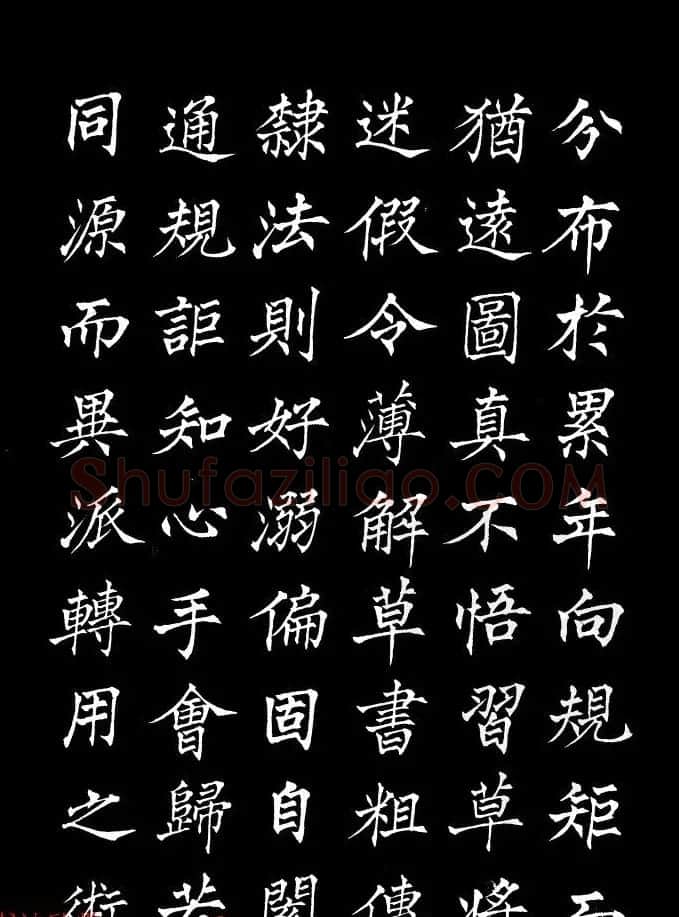 分布於累年向規矩而
猶遠圖真不悟習草將
迷假令薄解草書粗傳
隸法則好溺偏固自閡
通規詎知心手會歸若
同源而異派轉用之術
Shufaziliao.COM